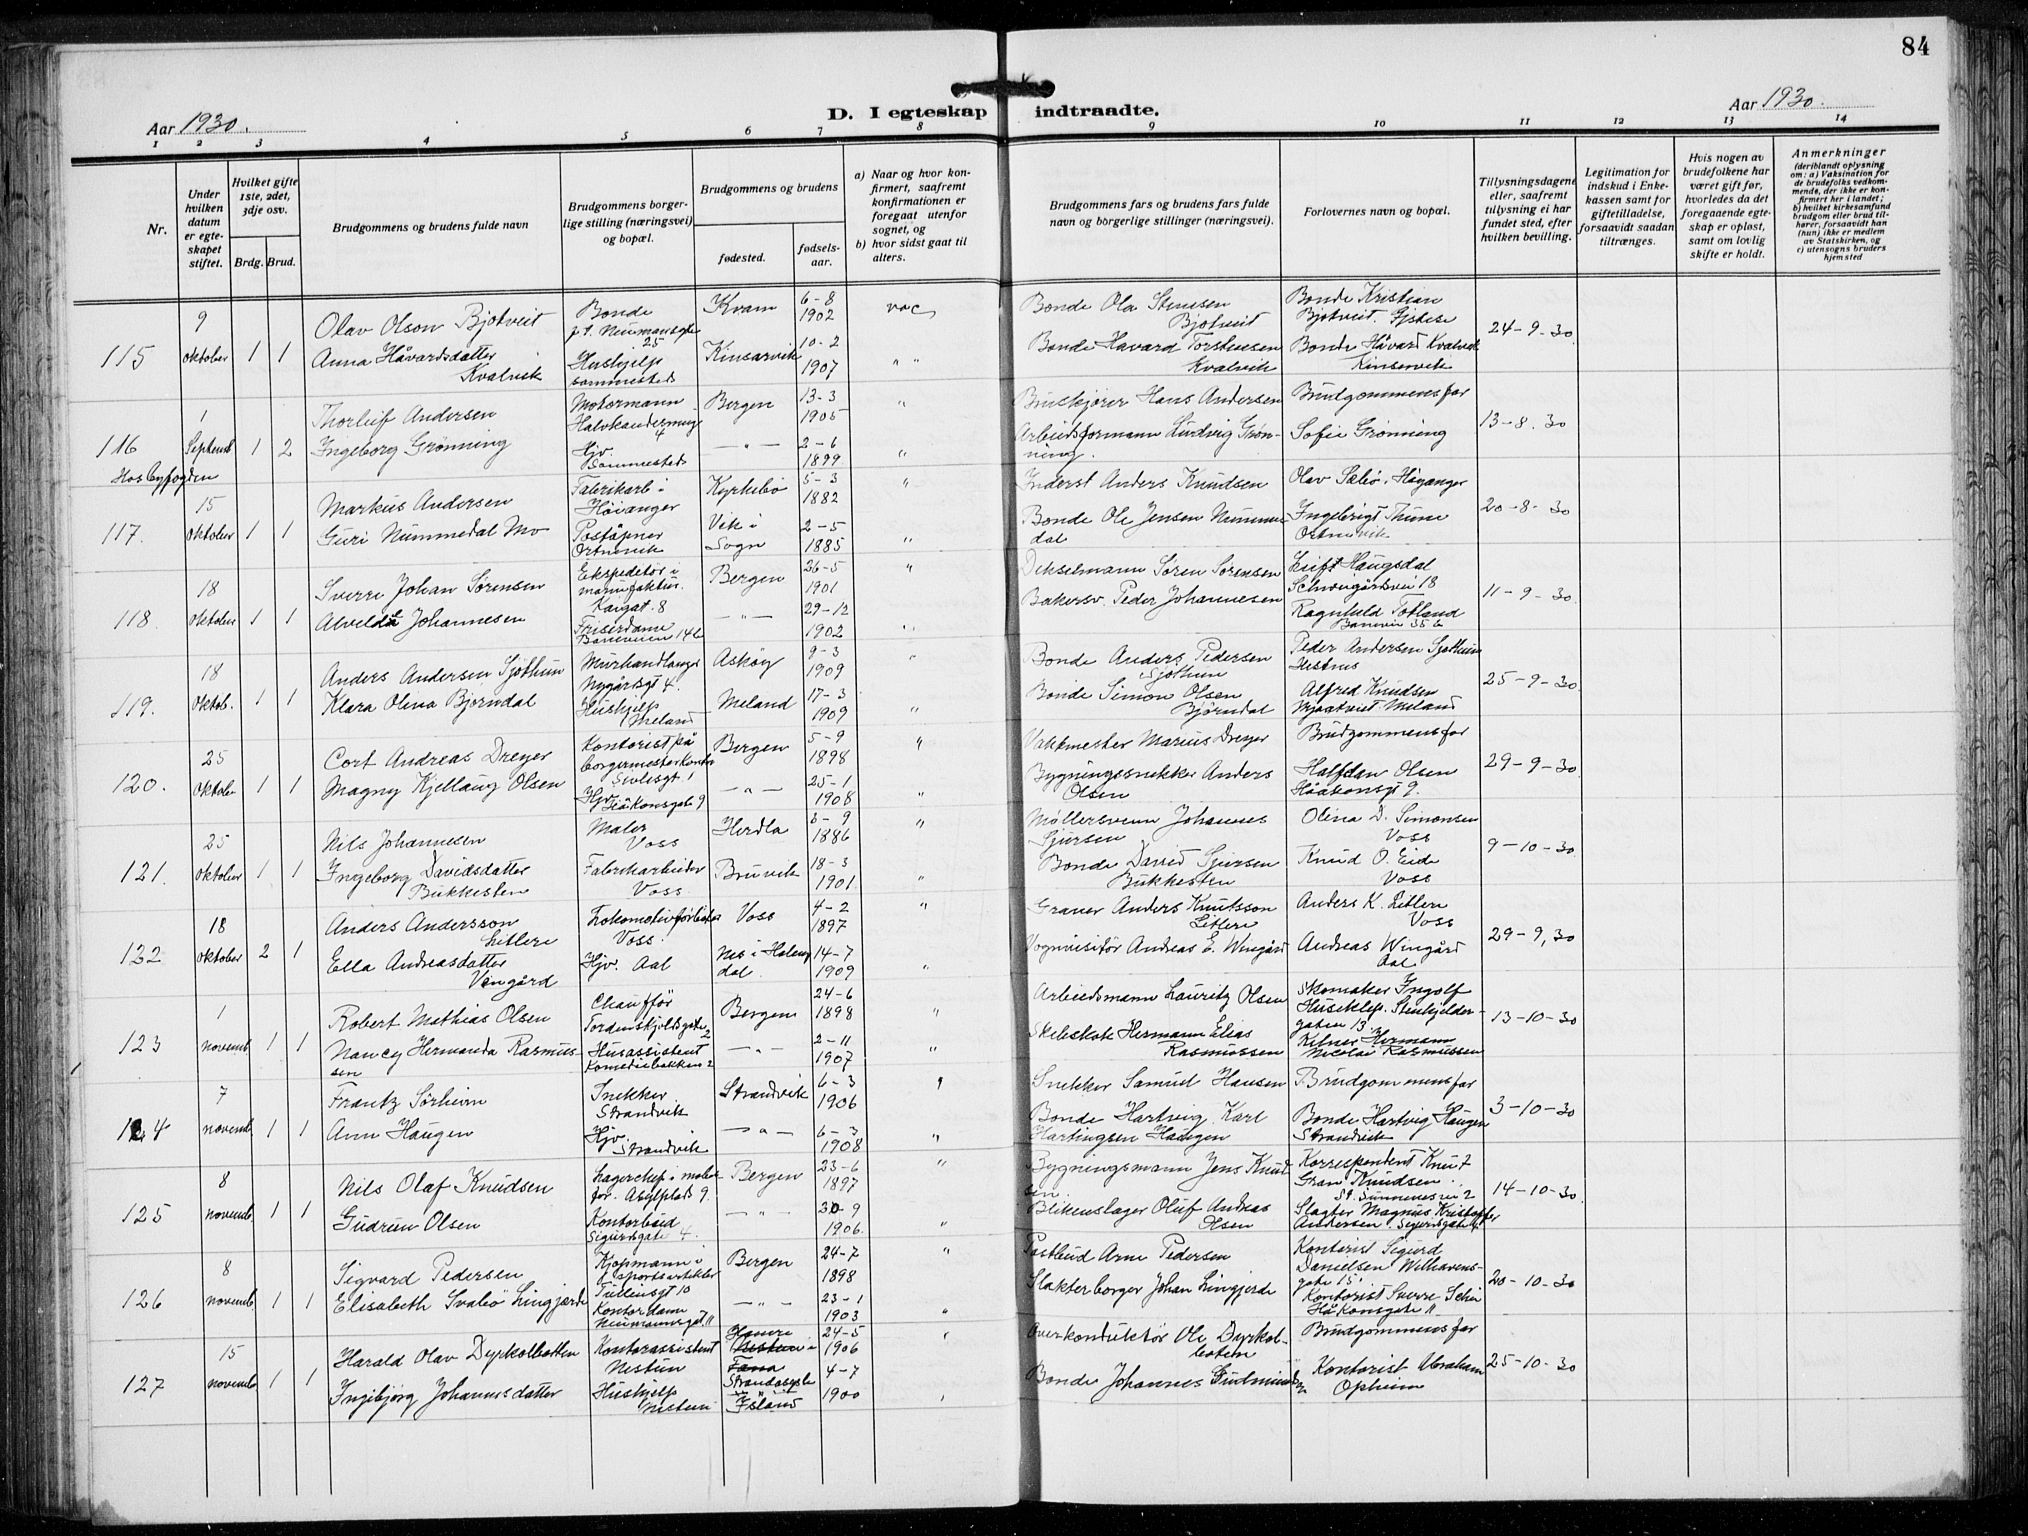 84
Aar 1930.
D. I egteskap indtraadte.
Aar 1930.
1 2 3 4 5 6 7 8 9 10 11 12 13 14
Nr.
Under hvilken datum er egteskapet stiftet.
Hvilket gifte 1ste, 2det, 3dje osv.
Brdg. Brud.
Brudgommens og brudens fulde navn
Brudgommens borgerlige stilling (næringsvei) og bopæl.
Brudgommens og brudens
fødested.
fødselsaar.
a) Naar og hvor konfirmert, saafremt konfirmationen er foregaat utenfor sognet, og
b) hvor sidst gaat til alters.
Brudgommens fars og brudens fars fulde navn og borgerlige stillinger (næringsvei).
Forlovernes navn og bopæl.
Tillysningsdagene eller, saafremt tillysning ei har fundet sted, efter hvilken bevilling.
Legitimation for indskud i Enkekassen samt for giftetilladelse, forsaavidt saadan tiltrænges.
Hvis nogen av brudefolkene har været gift før, hvorledes da det foregaaende egteskap er opløst, samt om lovlig skifte er holdt.
Anmerkninger
(deriblandt oplysning om: a) Vaksination for de brudefolks vedkommende, der ikke er konfirmert her i landet; b) hvilket kirkesamfund brudgom eller brud tilhører, forsaavidt han (hun) ikke er medlem av Statskirken, og c) utensogns bruders hjemsted
115 9 oktober 1 1
Olav Olson Bjotveit
Bonde p.t. Neumansgte 25
Kvam 6-8 1902
Bonde Ola Steinsen Bjotveit
Bonde Kristian Bjotveit.
Anna Håvardsdatter Kvalvik
Hushjelp sammesteds
Kinsarvik 10-2 1907 " "
Bonde Havard Torsteinsen Kvalvik
Bonde Håvard Kvalvik Kinservik
24-9-30
116 1 Septemb 1 2
Hos byfogden
Thorleif Andersen
Motormann
4
Bergen 13-3 1905 "
Hans Andersen
Brudgommens far
Ingeborg Grönning
Hjv. Sammesteds
- " - 2-6 1899 "
Arbeidsformann Ludvig Grönning.
Sofie Grönning
13-8.30
117. 15 oktober 1 1
Markus Andersen
Fabrikarb i Høianger
Kyrkebö 5-3 1882 "
Inderst Anders Knudsen
Olav Sæbö. Höyanger
Guri Nummedal Mo
Poståpner Ortnevik
Vik i Sogn 2-5 1885 "
Bonde Ole Jensen Nummedal
Ingebrigt Thune Ortnevik
20-8-30
118. 18 oktober 1 1
Sverre Johan Sørensen
Ekspeditör i manufaktur. Kaigat. 8
Bergen 26-5 1901 "
Sören Sorensen
Leif Haugsdal
18
Alvelda Johannesen
Friserdame Baneveien 14b
- " - 29-12 1902 "
Bakersv. Peder Johannesen
Ragnhild Totland
11-9-30
119. 18 oktob. 1 1
Anders Andersen Sjöthun
Murhandlanger Nygårdsgt 4.
Askøy 9-3 1909 "
Bonde Anders Pedersen Sjöthun
Peder Andersen Sjöthun
Klara Olina Bjorndal
Hushjelp Meland
Meland 17-3 1909 "
Bonde Simon Olsen Bjørndal
Alfred Knudsen
Meland
25-9-30
120. 25 oktober 1 1
Cort Andreas Dreyer
Kontorist på borgermesterkontor Sivlesgt. 1
Bergen 5-9 1898 "
Vaktmester Marius Dreyer
Brudgommens far
Magny Kjellaug Olsen
Hjv. Håkonsgate 9
- " - 25-1 1908 "
Bygningssnekker Anders Olsen
Halfdan Olsen Håakonsgt 9.
29-9-30
121. 25 oktober 1 1
Nils Johannesen
Maler Voss
Herdla 1886 "
Møllersvenn Johannes Sjursen
Olina D. Simonsen Voss
Ingeborg Davidsdatter Bukkesten
Fabrikarbeider Voss.
Bruvik 18-3 1901. "
Bonde David Sjursen Bukkesten
Knud O. Eide Voss
9-10-30
122. 18 oktober 2 1
Anders Andersson Litlere
Voss.
Voss 4-2 1897 "
Anders Knutsson Litlere
Anders K. Litlere Voss
Ella Andreasdatter Vingård
Hjv. Aal
Nes i Halingdal. 14-7 1909 "
Andreas E. Wingård
Andreas Wingård Aal
29-9, 30
123 1 novemb. 1 1
Robert Mathias Olsen
Chauffør Tordenskjoldsgate 2
Bergen 24-6 1898 "
Arbeidsmann Lauritz Olsen
Skomaker Ingolf
13
Nancy Hermanda Rasmussen
Husassistent Komediebakken 2
- " - 2-11 1907 "
Hermann Elias Rasmussen
Kelner Hermann Nicolai Rasmussen
13-10-30
124 7 novemb. 1 1
Frantz Sörheim
Snekker Strandvik
Strandvik 6-3 1906 "
Snekker Samuel Hansen
Brudgommens far
Ann Haugen
Hjv. Strandvik
- " - 6-3 1908 "
Bonde Hartvig Karl Hartingsen Haugen
Bonde Hartvig Haugen Strandvik
3-10-30
125 8 novemb. 1 1
Nils Olaf Knudsen
Asylplads 9.
Bergen 23-6 1897 "
Bygningsmann Jens Knudsen.
Korrespondent Knut Gran Knudsen.
Gudrun Olsen
Kontorbud Sigurdsgate 4.
- " - 30-9 1906. "
Blikenslager Oluf Andreas Olsen
Slagter Magnus Kristoffer Andersen. Sigurdsgate 4
14-10-30
126 8 novemb. 1 1
Sigvard Pedersen
Kjøpmann i sportsartikler Tullinsgt 10
Bergen 24-7 1898 "
Postbud Arne Pedersen
Kontorist Sigurd Danielsen Welhavensgate 15.
Elisabeth Svabö Lingjærde
Kontordame Neumannsgt. 11
- " - 23-1 1903 "
Slakterborger Johan Lingjerde
Kontorist Sverre
Håkonsgate 11
20-10-30
127 15 novemb. 1 1
Harald Olav Dyrkolbotten
Kontorassistent Nestun
24-5 1906
Overkonduktör Ole Dyrkolbotten
Brudgommens far
Ingibjörg Johannesdatter
Hushjelp Nestun
Island 4-7 1900
Bonde Johannes
Kontorist Abraham Opheim
25-10-30